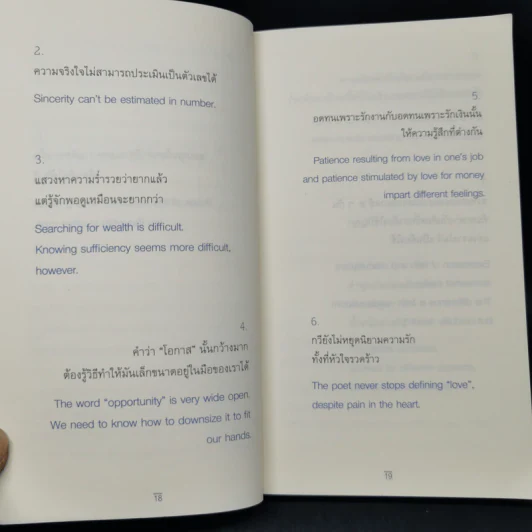 2.
ความจริงใจไม่สามารถประเมินเป็นตัวเลขได้
Sincerity can't be estimated in number.
3.
แสวงหาความร่ำรวยว่ายากแล้ว
แต่รู้จักพอดูเหมือนจะยากกว่า
Searching for wealth is difficult.
Knowing sufficiency seems more difficult,
however.
4.
คำว่า "โอกาส" นั้นกว้างมาก
ต้องรู้วิธีทำให้มันเล็กขนาดอยู่ในมือของเราได้
The word "opportunity" is very wide open.
We need to know how to downsize it to fit
our hands.
18
5.
อดทนเพราะรักงานกับอดทนเพราะรักเงินนั้น
ให้ความรู้สึกที่ต่างกัน
Patience resulting from love in one's job
and patience stimulated by love for money
impart different feelings.
6.
กวียังไม่หยุดนิยามความรัก
ทั้งที่หัวใจรวดร้าว
The poet never stops defining "love",
despite pain in the heart.
19